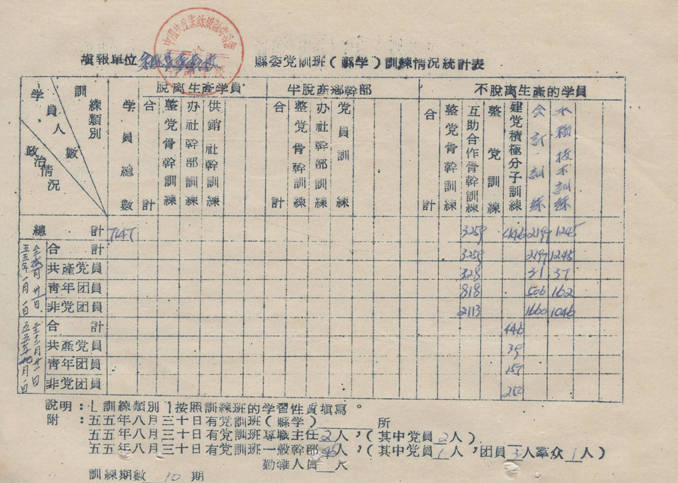 填報單位 縣委党訓班(縣学)訓練情況統計表
学員人數 訓練類別 政治情況
学員總數
脫离生產学員
合計 整党骨幹訓練 办社幹部訓練 供銷社幹部訓練
半脫產鄉幹部
合計 整党骨幹訓練 办社幹部訓練 党員訓練
不脫离生產的学員
合計 整党骨幹訓練 互助合作骨幹訓練 整党訓練 建党積極分子訓練 会計訓練 水稻技术訓練
總計 7147 3259 446 2197 1245
合計 3259 2197 1245
共產党員 328 31 37
青年团員 818 506 162
非党团員 2113 1660 1046
合計 446
共產党員 39
青年团員
非党团員
說明:「訓練類別」按照訓練班的学習性貭填寫。
附:五五年八月三十日有党訓班(縣学) 所
五五年八月三十日有党訓班專職主任2人,(其中党員2人)
五五年八月三十日有党訓班一般幹部 人,(其中党員1人,团員3人羣众1人)
勤雜人員 人
訓練期數 10 期